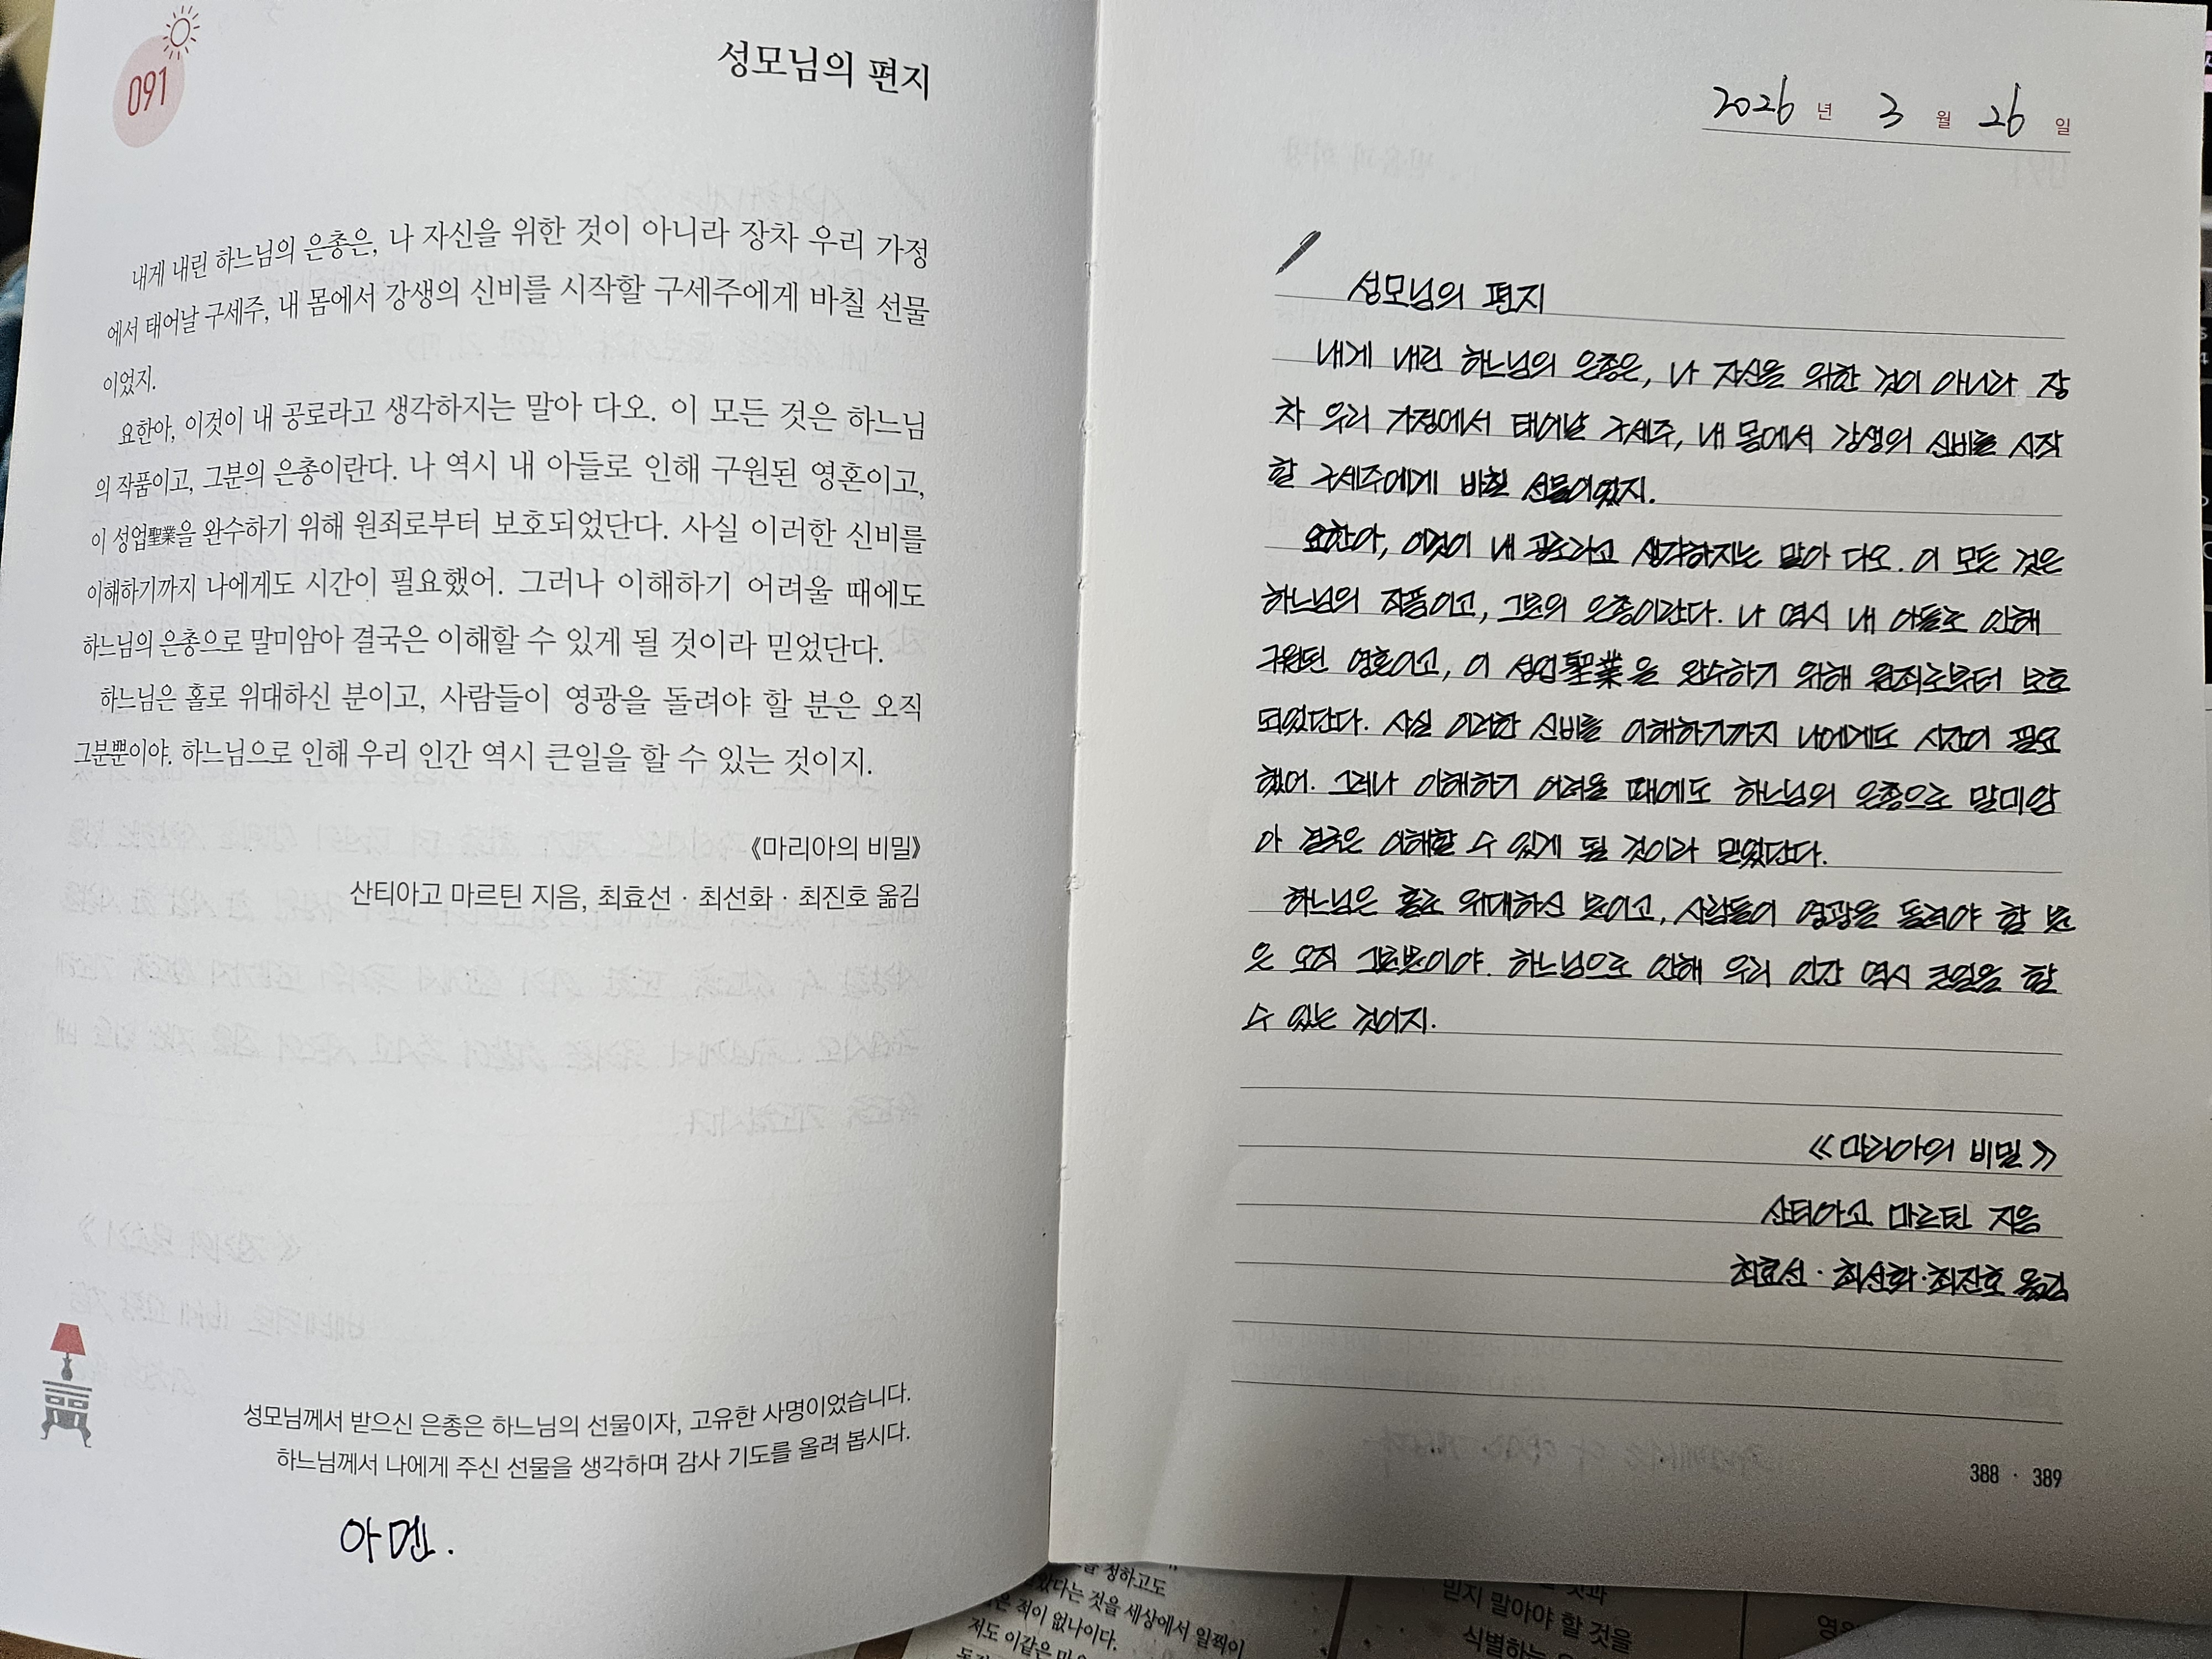 091
성모님의 편지
내게 내린 하느님의 은총은, 나 자신을 위한 것이 아니라 장차 우리 가정
에서 태어날 구세주, 내 몸에서 강생의 신비를 시작할 구세주에게 바칠 선물
이었지.
요한아, 이것이 내 공로라고 생각하지는 말아 다오. 이 모든 것은 하느님
의 작품이고, 그분의 은총이란다. 나 역시 내 아들로 인해 구원된 영혼이고,
이 성업聖業을 완수하기 위해 원죄로부터 보호되었단다. 사실 이러한 신비를
이해하기까지 나에게도 시간이 필요했어. 그러나 이해하기 어려울 때에도
하느님의 은총으로 말미암아 결국은 이해할 수 있게 될 것이라 믿었단다.
하느님은 홀로 위대하신 분이고, 사람들이 영광을 돌려야 할 분은 오직
그분뿐이야. 하느님으로 인해 우리 인간 역시 큰일을 할 수 있는 것이지.
《마리아의 비밀》
산티아고 마르틴 지음, 최효선 · 최선화 · 최진호 옮김
성모님께서 받으신 은총은 하느님의 선물이자, 고유한 사명이었습니다.
하느님께서 나에게 주신 선물을 생각하며 감사 기도를 올려 봅시다.
아멘.
2026 년 3 월 26 일
성모님의 편지
내게 내린 하느님의 은총은, 나 자신을 위한 것이 아니라 장
차 우리 가정에서 태어날 구세주, 내 몸에서 강생의 신비를 시작
할 구세주에게 바칠 선물이었지.
요한아, 이것이 내 공로라고 생각하지는 말아 다오. 이 모든 것은
하느님의 작품이고, 그분의 은총이란다. 나 역시 내 아들로 인해
구원된 영혼이고, 이 성업聖業을 완수하기 위해 원죄로부터 보호
되었단다. 사실 이러한 신비를 이해하기까지 나에게도 시간이 필요
했어. 그러나 이해하기 어려울 때에도 하느님의 은총으로 말미암
아 결국은 이해할 수 있게 될 것이라 믿었단다.
하느님은 홀로 위대하신 분이고, 사람들이 영광을 돌려야 할 분
은 오직 그분뿐이야. 하느님으로 인해 우리 인간 역시 큰일을 할
수 있는 것이지.
《마리아의 비밀》
산티아고 마르틴 지음
최효선 · 최선화 · 최진호 옮김
388 · 389
청하고도
있다는 것을 세상에서 일찍이
적이 없나이다.
저도 이같은
믿지 말아야 할 것을
식별하는